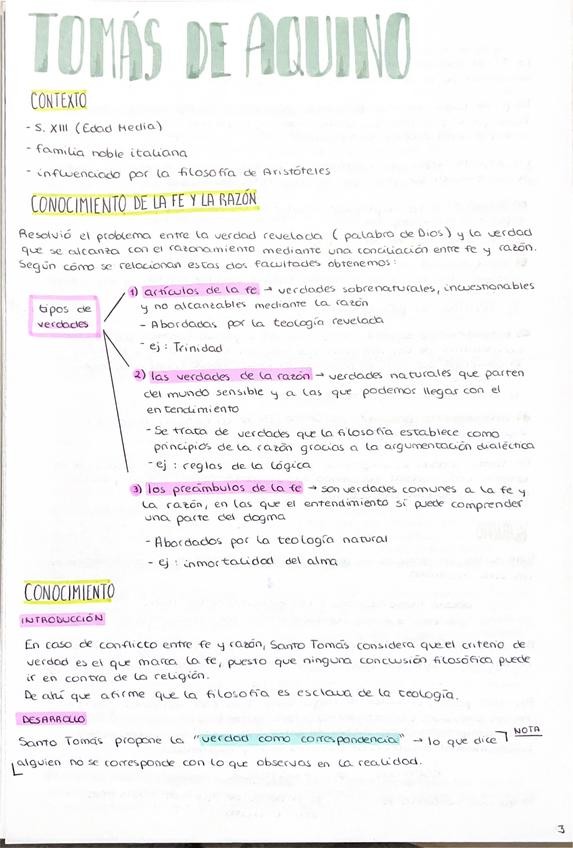 TOMÁS DE AQUINO
CONTEXTO
- S. XIII (Edad Media)
- familia noble italiana
- influenciado por la filosofía de Aristóteles
CONOCIMIENTO DE LA FE Y LA RAZÓN
Resolvió el problema entre la verdad revelada (palabra de Dios) y la verdad
que se alcanza con el razonamiento mediante una conciliación entre fe y razón.
Según cómo se relacionan estas dos facultades obtenemos:
tipos de
verdades
1) artículos de la fe → verdades sobrenaturales, incuestionables
y no alcanzables mediante la razón
- Abordadas por la teología revelada
- ej: Trinidad
2) las verdades de la razón → verdades naturales que parten
del mundo sensible y a las que podemos llegar con el
entendimiento
- Se trata de verdades que la filosofía establece como
principios de la razón gracias a la argumentación dialéctica
- ej: reglas de la lógica
3) los preámbulos de la fe → son verdades comunes a la fe y
la razón, en las que el entendimiento sí puede comprender
una parte del dogma
- Abordados por la teología natural
- ej: inmortalidad del alma
CONOCIMIENTO
INTRODUCCIÓN
En caso de conflicto entre fe y razón, Santo Tomás considera que el criterio de
verdad es el que marca la fe, puesto que ninguna conclusión filosófica puede
ir en contra de la religión.
De ahí que afirme que la filosofía es esclava de la teología.
DESARROLLO
Santo Tomás propone la "verdad como correspondencia" → lo que dice NOTA
alguien no se corresponde con lo que observas en la realidad.
3